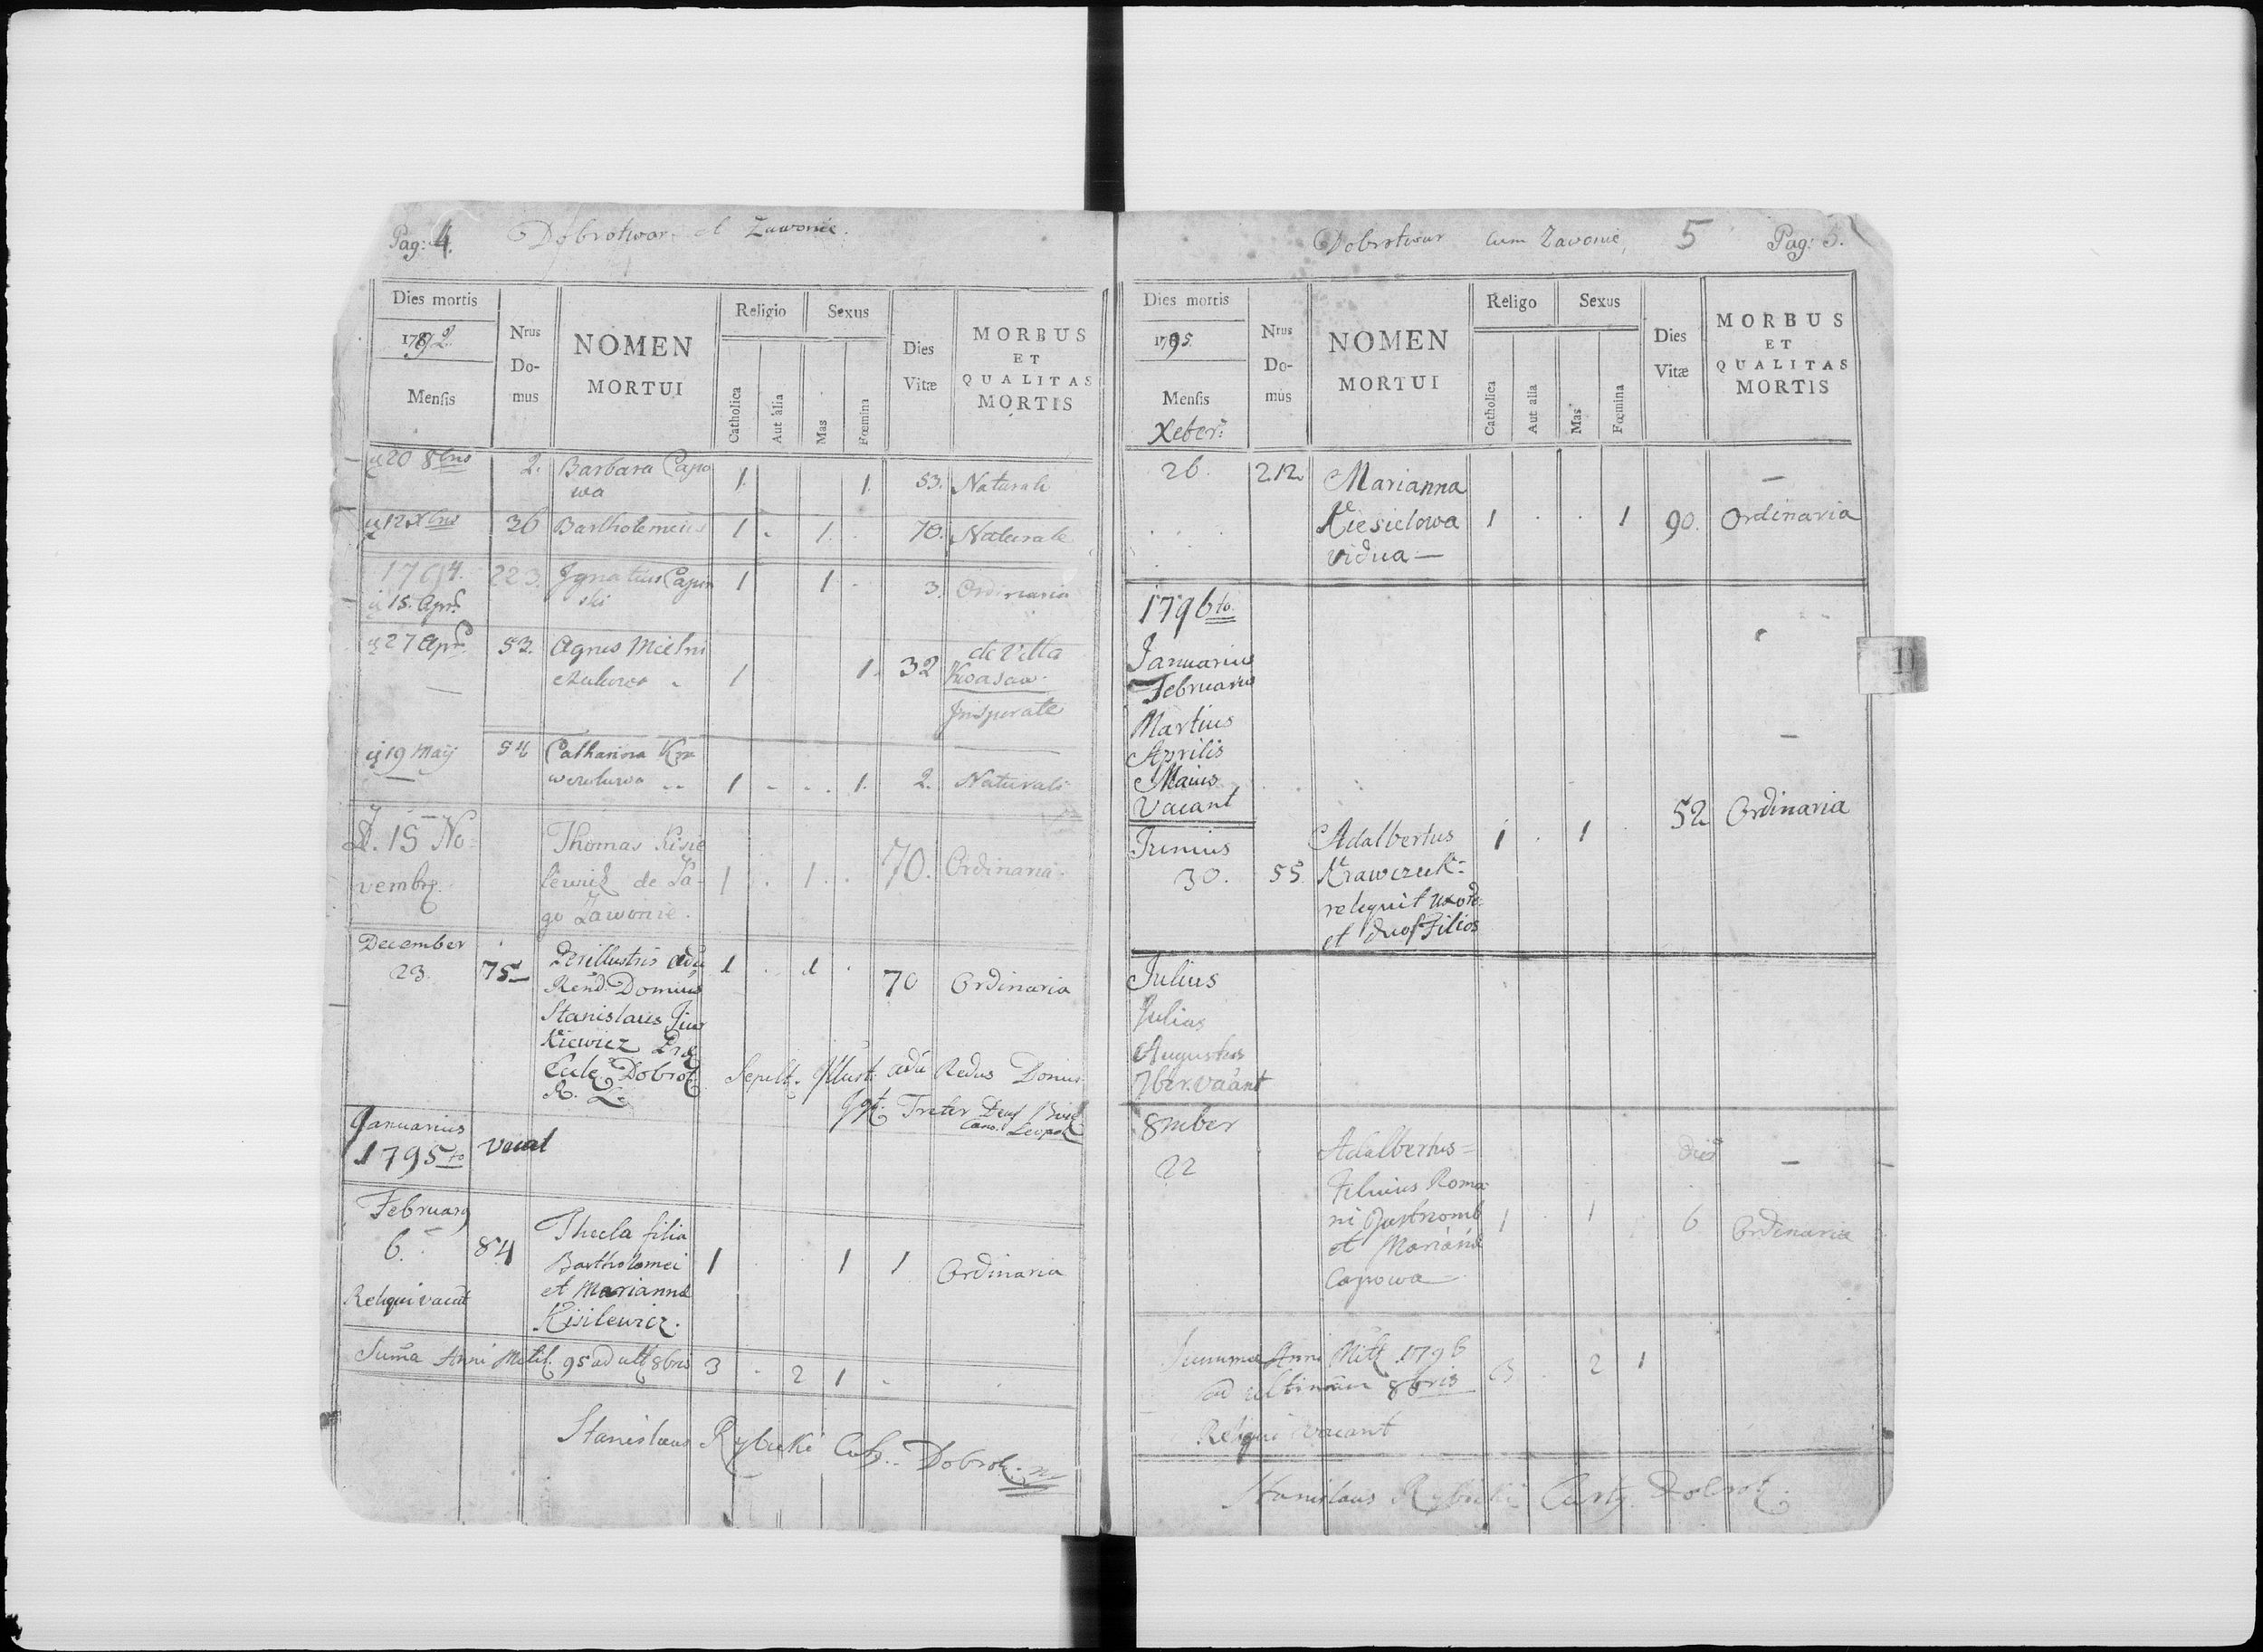 Pag: 4. Dobrotwor et Zawonie.
Dies mortis
1792.
Mensis
Nrus
Do-
mus
NOMEN
MORTUI
Religio
Catholica
Aut alia
Sexus
Mas
Fœmina
Dies
Vitæ
MORBUS
ET
QUALITAS
MORTIS
20 8bris 2. Barbara Capo
wa 1. 1. 53. Naturali
12 Xbris 36 Bartholemeus 1 . 1. . 70. Naturale
1794. 223. Ignatius Capu 1 1 . 3. Ordinaria
15. Apr. ski
27 Apr. 52. Agnes Mielni de Villa
1 1. 32
Insperate
19 Maij 54 Catharina Kra
1 . . . 1. 2. Naturali
15 No- Thomas Kisie
vembr. lewicz de Pa- 1 . 1 . . 70. Ordinaria.
go Zawonie.
December
23. 75 Perillustris Adm 1 . 1 . 70 Ordinaria
Rend. Dominus
Stanislaus
kiewicz
Dobrot
Sepelt. Illust. adm Redus Domin.
Januarius
1795to vacat
February
6. 84 Thecla filia
Bartholomei 1 . . 1 1 Ordinaria
et Marianna
Reliqui vacant Kisilewicz.
Suma Anni Milit. 95 ad ult 8bris 3 . 2 1 .
Stanislaus Rybicki Dobrot.
Dobrotwor cum Zawonie, 5 Pag: 5.
Dies mortis
1795.
Mensis
Xeber.
Nrus
Do-
mus
NOMEN
MORTUI
Religo
Catholica
Aut alia
Sexus
Mas
Fœmina
Dies
Vitæ
MORBUS
ET
QUALITAS
MORTIS
26. 212. Marianna —
Kiesielowa 1 . . 1 90. Ordinaria
vidua —
1796to.
Januarius
Februarius
Martius
Aprilis
Maius
Vacant
Junius Adalbertus 1 . 1 . 52 Ordinaria
30. 55. Krawczuk
reliquit uxore
et duos Filios
Julius
Julius
Augustus
7ber. vacant
8mber
22 Adalbertus = Died —
Filius Roma-
ni 1 . 1 6 Ordinaria
et Marianna
Capowa
Summa Anni Milit 1796 3 . 2 1
ad ultimam 8bris
Reliqui vacant
Stanislaus Rybicki Dobrot.